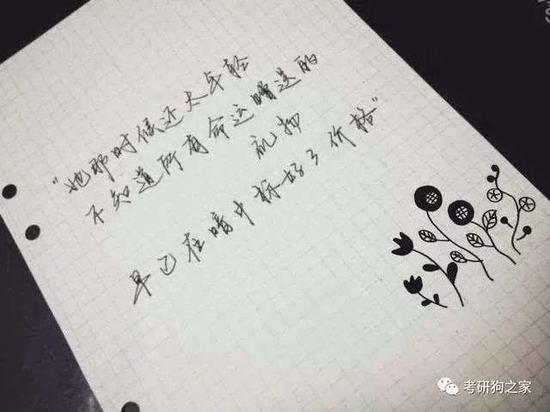 "她那时候还太年轻
不知道所有命运赠送的
礼物
早已在暗中标好了价格"
考研狗之家